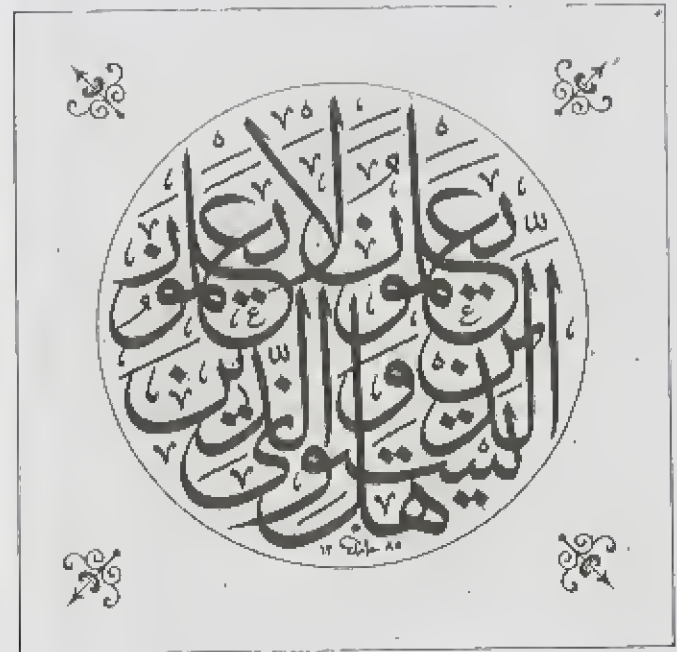 هل يستوى الذين يعلمون والذين لا يعلمون